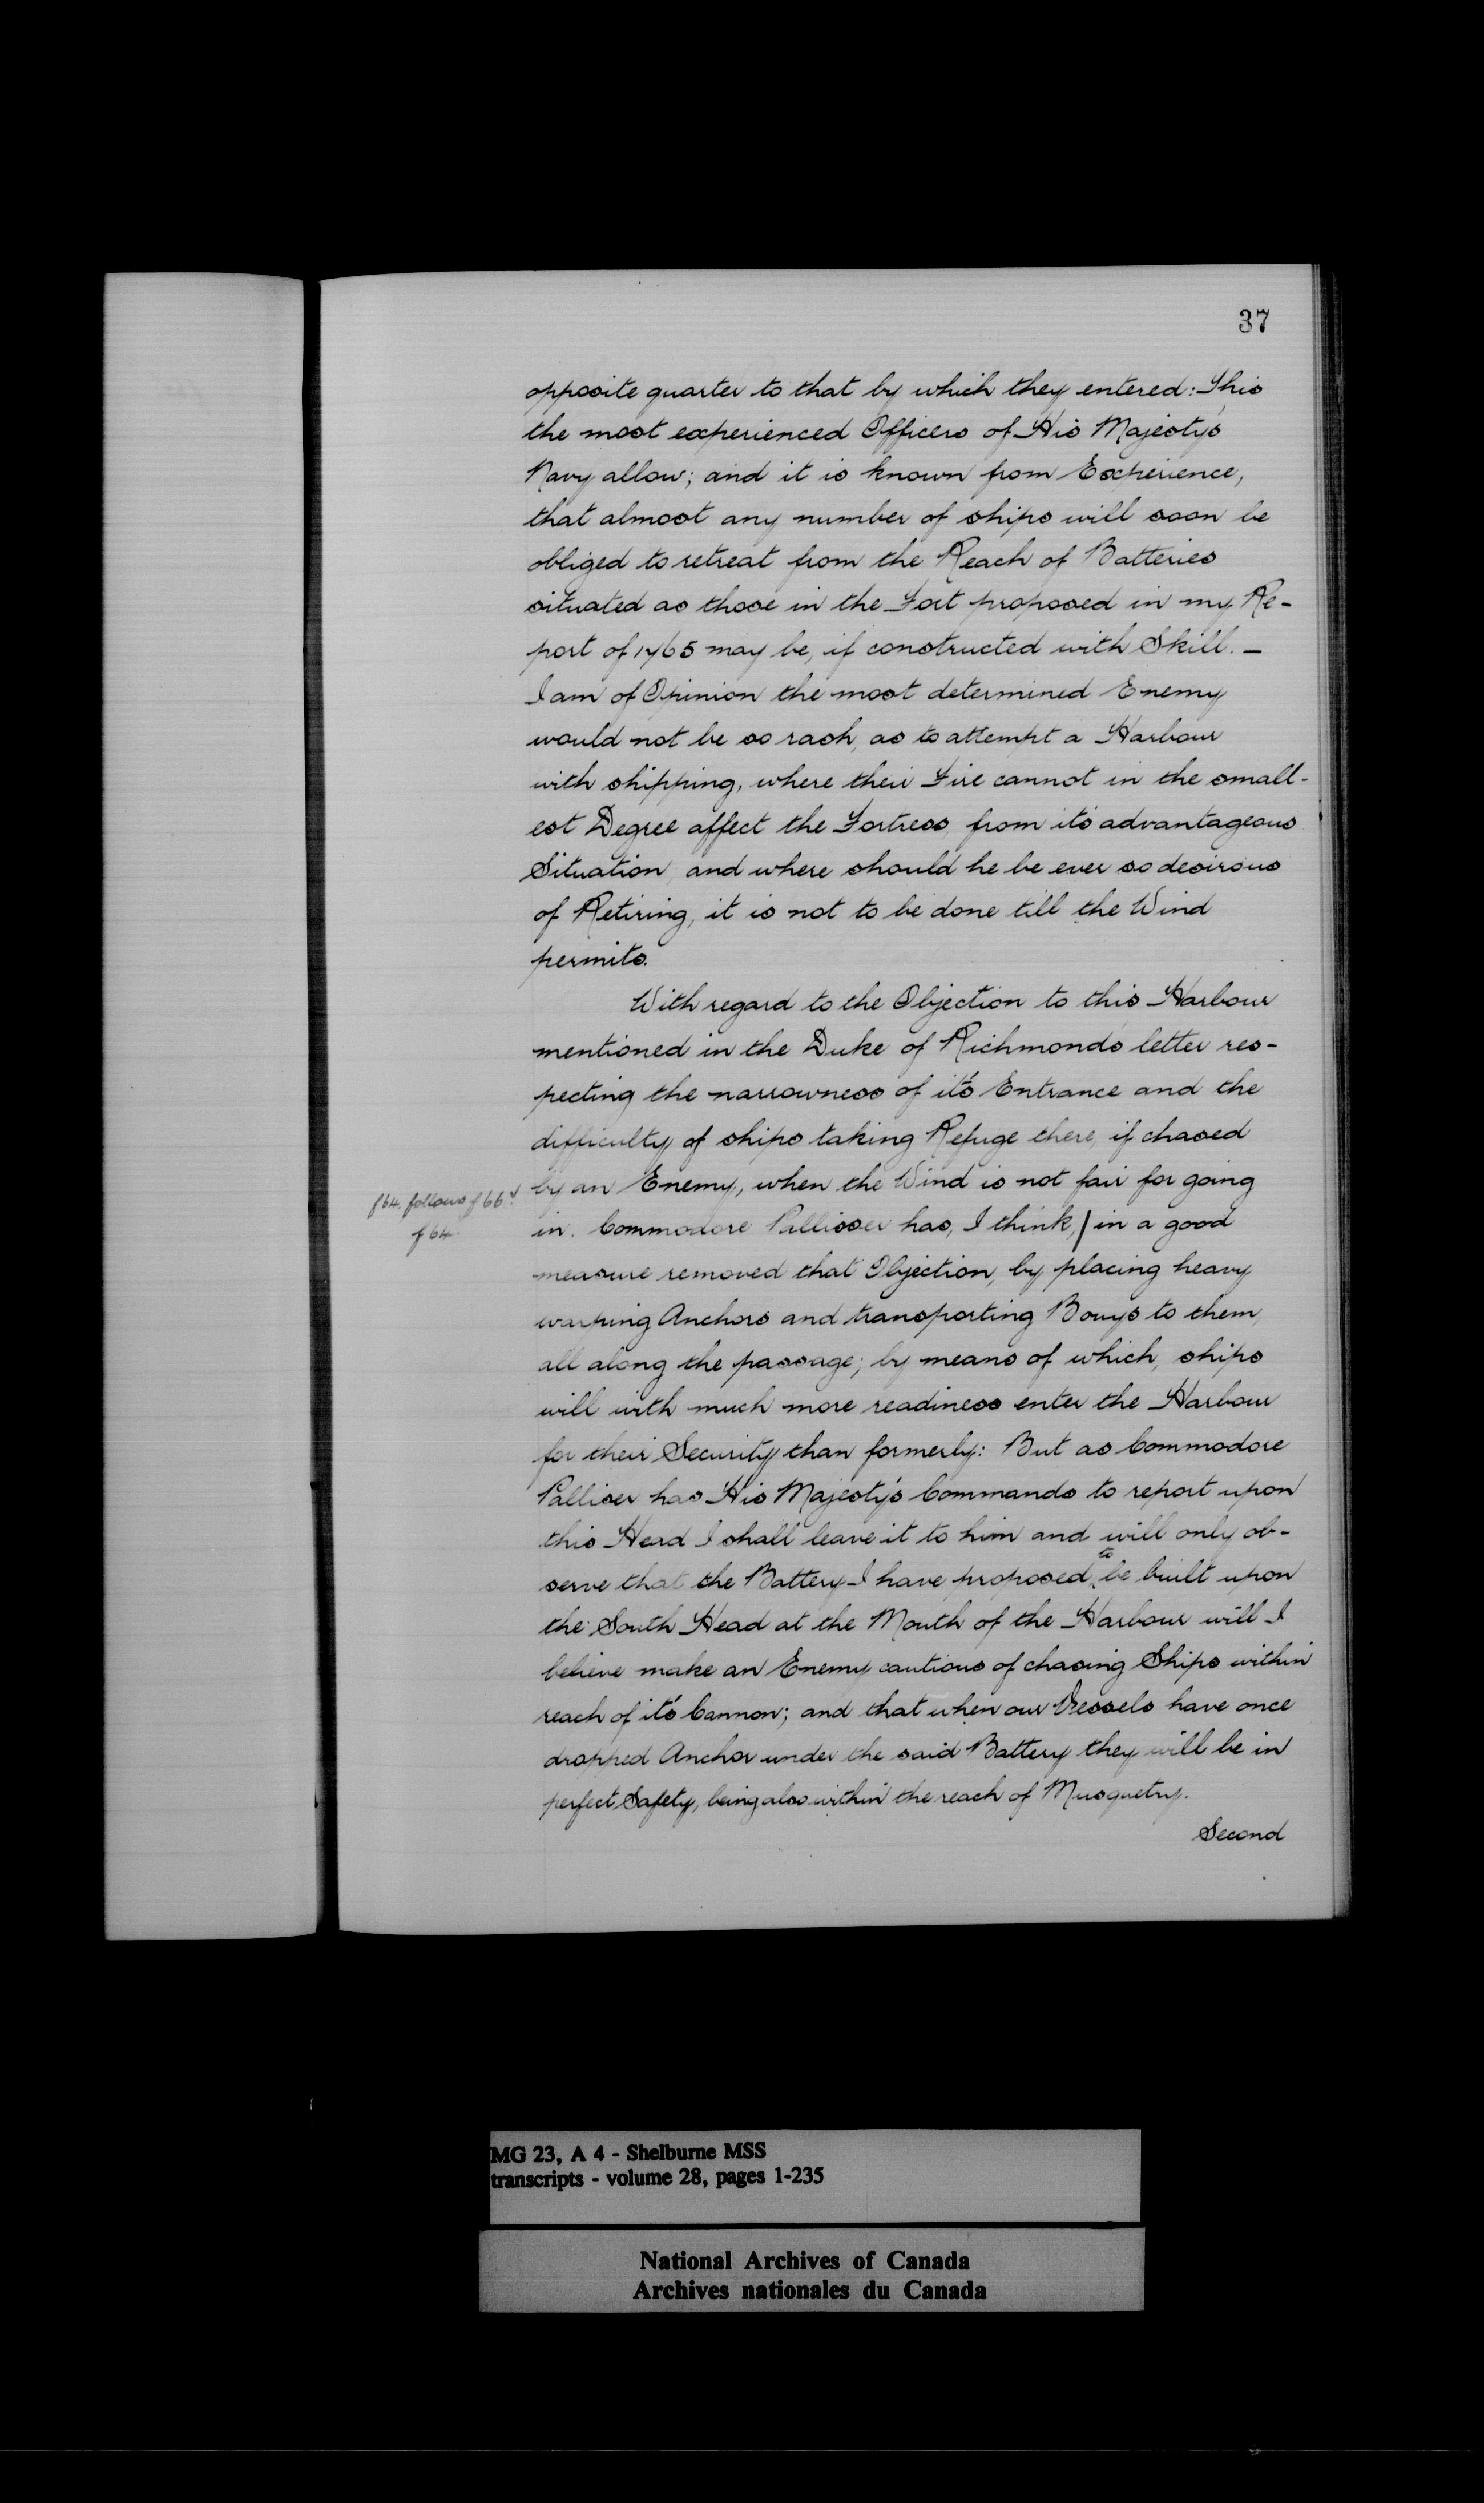 37
opposite quarter to that by which they entered: This
the most experienced Officers of His Majesty's
Navy allow; and it is known from Experience,
that almost any number of ships will soon be
obliged to retreat from the Reach of Batteries
situated as those in the Fort proposed in my Re-
port of 1765 may be, if constructed with Skill. —
I am of Opinion the most determined Enemy
would not be so rash, as to attempt a Harbour
with shipping, where their Fire cannot in the small-
est Degree affect the Fortress, from its advantageous
Situation, and where should he be ever so desirous
of Retiring, it is not to be done till the Wind
permits.
With regard to the Objection to this Harbour
mentioned in the Duke of Richmond's letter res-
pecting the narrowness of it's Entrance and the
difficulty of ships taking Refuge there, if chased
f 64. follows f 66v. by an Enemy, when the Wind is not fair for going
f 64. in. Commodore Pallisser has, I think,/ in a good
measure removed that Objection, by placing heavy
warping Anchors and transporting Bouys to them,
all along the passage; by means of which, ships
will with much more readiness enter the Harbour
for their Security than formerly: But as Commodore
Palliser has His Majesty's Commands to report upon
this Head I shall leave it to him and will only ob-
serve that the Battery I have proposed to be built upon
the South Head at the Mouth of the Harbour will I
believe make an Enemy cautious of chasing Ships within
reach of it's Cannon; and that when our Vessels have once
dropped Anchor under the said Battery they will be in
perfect Safety, being also within the reach of Musquetry.
Second
MG 23, A 4 - Shelburne MSS
transcripts - volume 28, pages 1-235
National Archives of Canada
Archives nationales du Canada